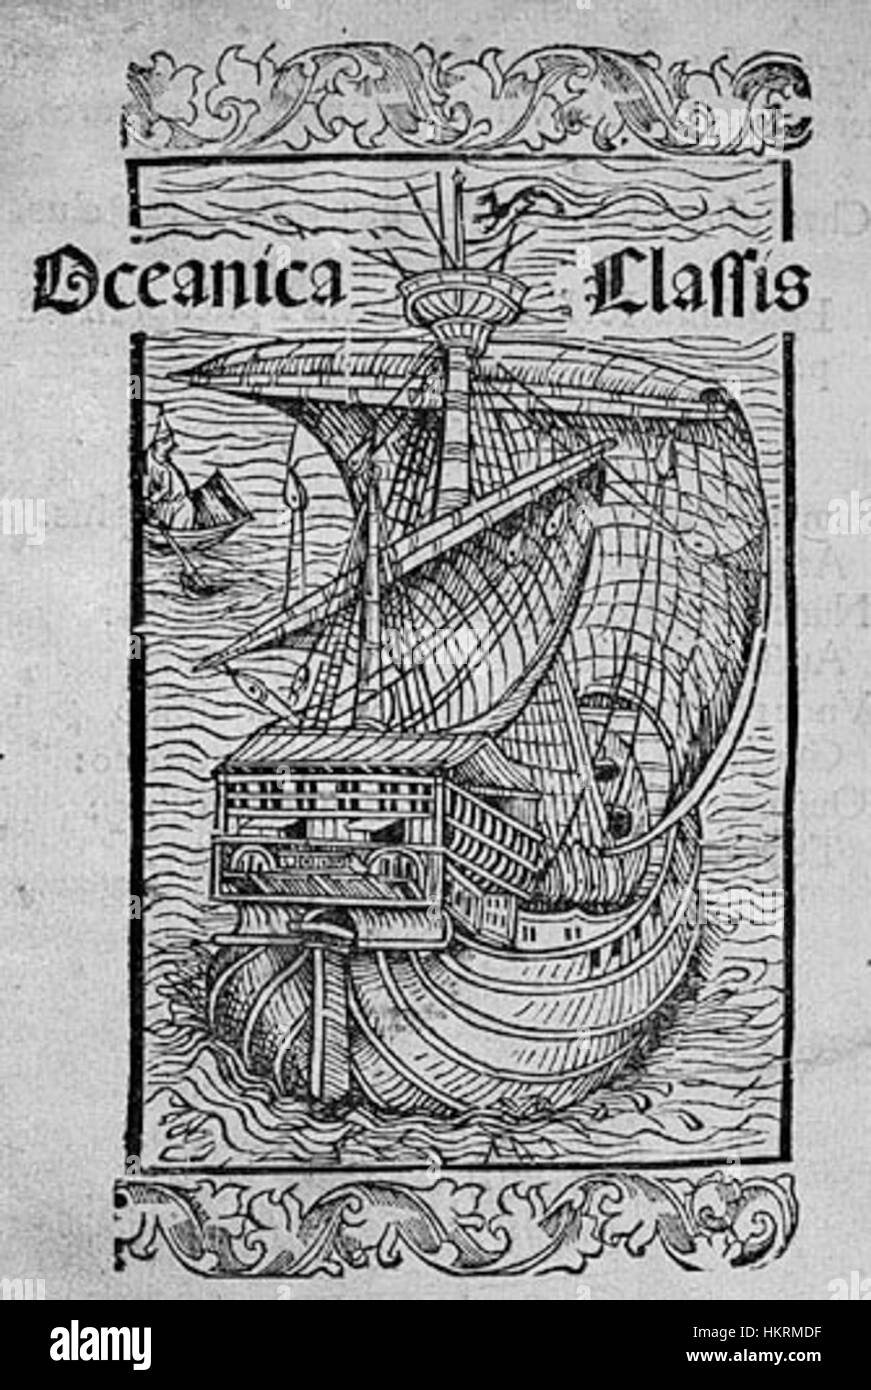 Oceanica Classis
alamy
Image ID: HKRMDF
www.alamy.com